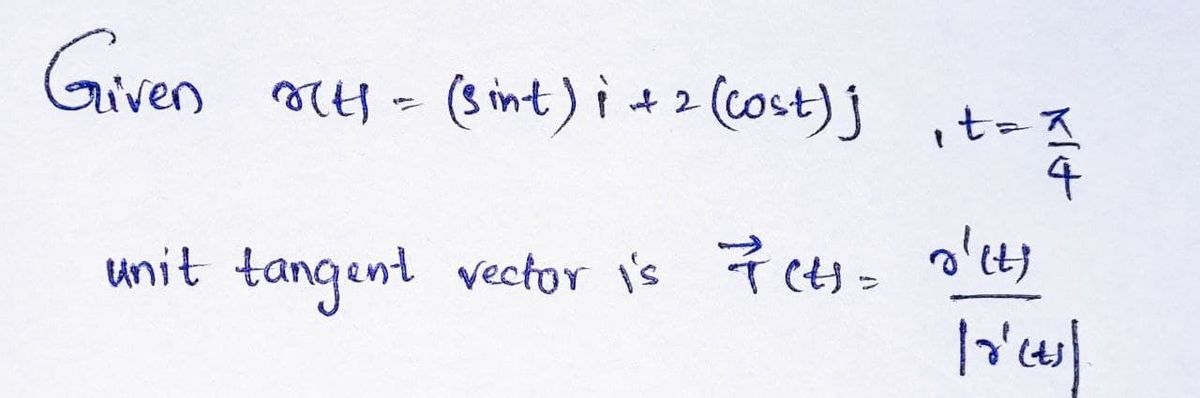 Given r(t) = (sint) i + 2 (cost) j , t = π/4
unit tangent vector is T⃗(t) = r'(t) / |r'(t)|